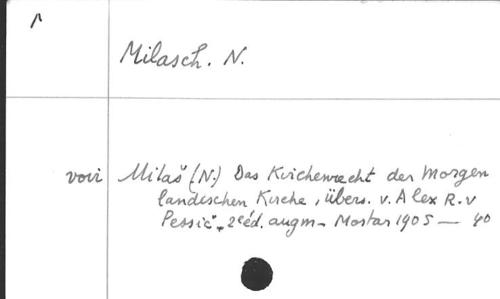 Milasch. N.
voir Milaš (N.) Das Kirchenrecht der Morgen
landischen Kirche, übers. v. Alex R. v
Pessić, 2e éd. augm - Mostar 1905 — 40